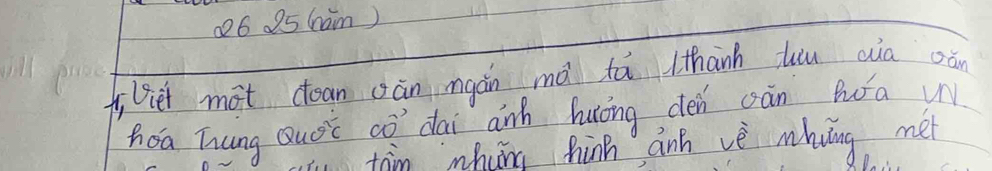 26 25 (năm)
1, Viết một đoạn văn ngắn mô tả 1 thành tựu của văn
hóa Trung Quốc cổ đại ảnh hưởng đến văn hóa VN
tầm những hình ảnh về những nét